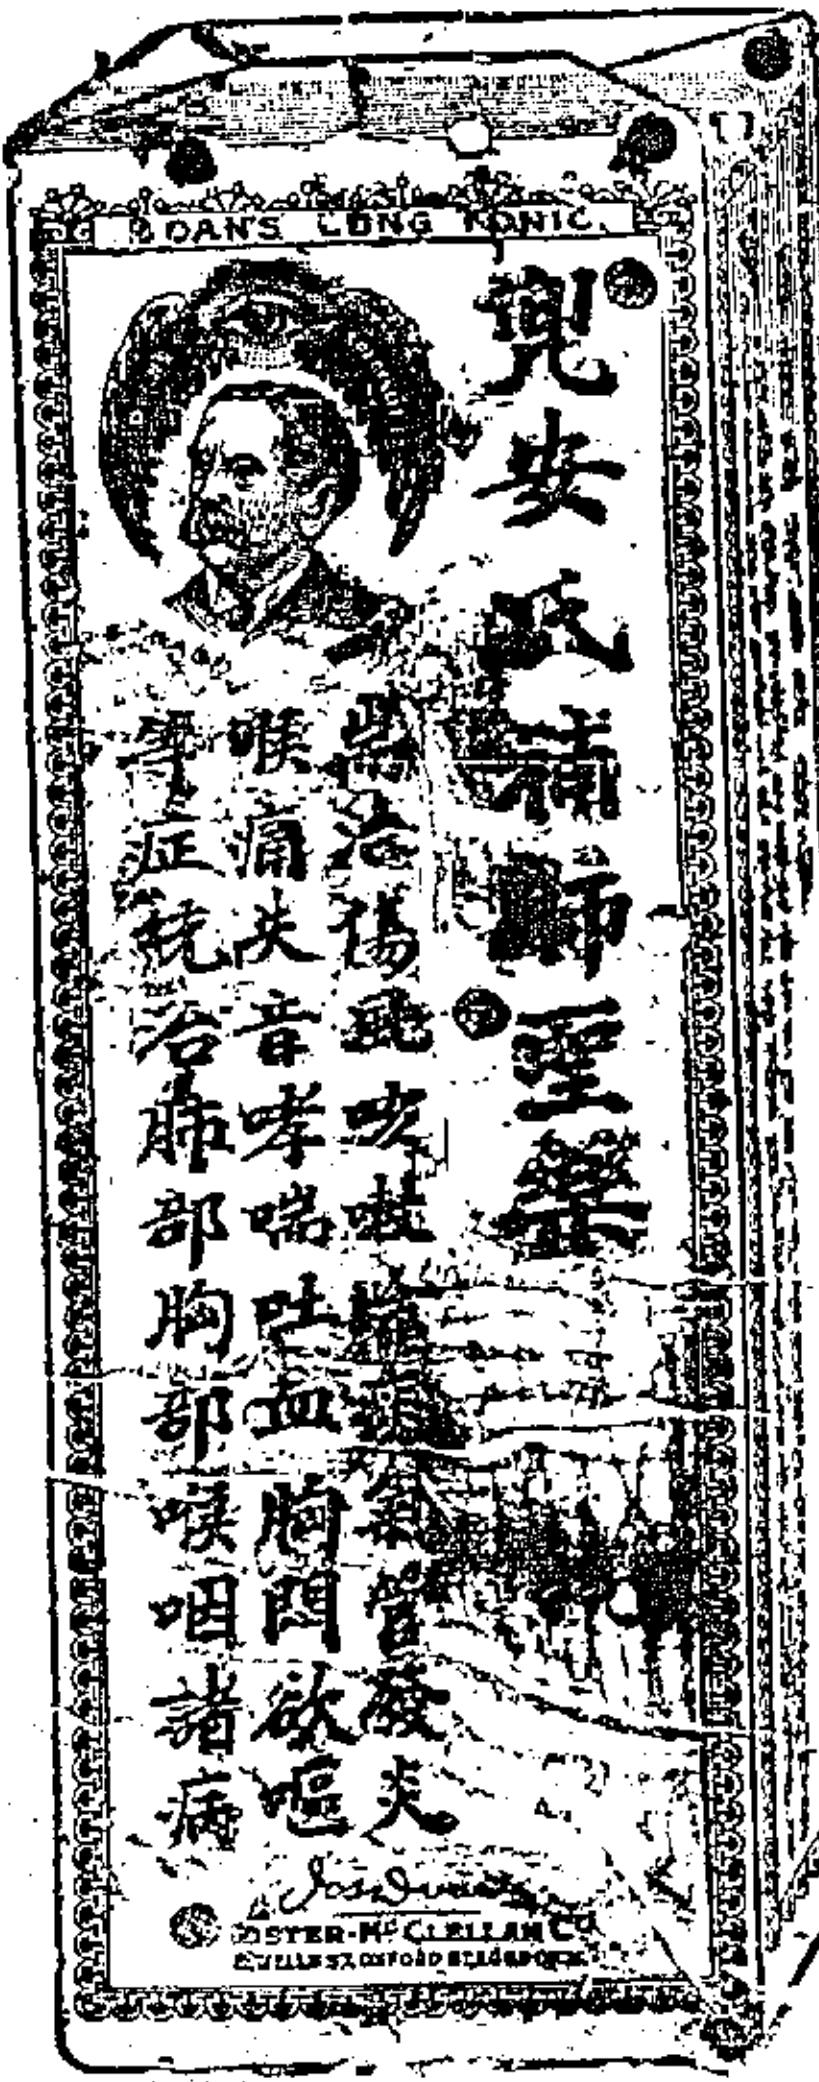 DOAN'S LUNG TONIC
兜安氏補肺聖藥
治傷風咳嗽
氣管發炎
喉痛失音哮喘吐血胸悶欲嘔
等症統治肺部胸部喉咽諸病
FOSTER-McCLELLAN Co